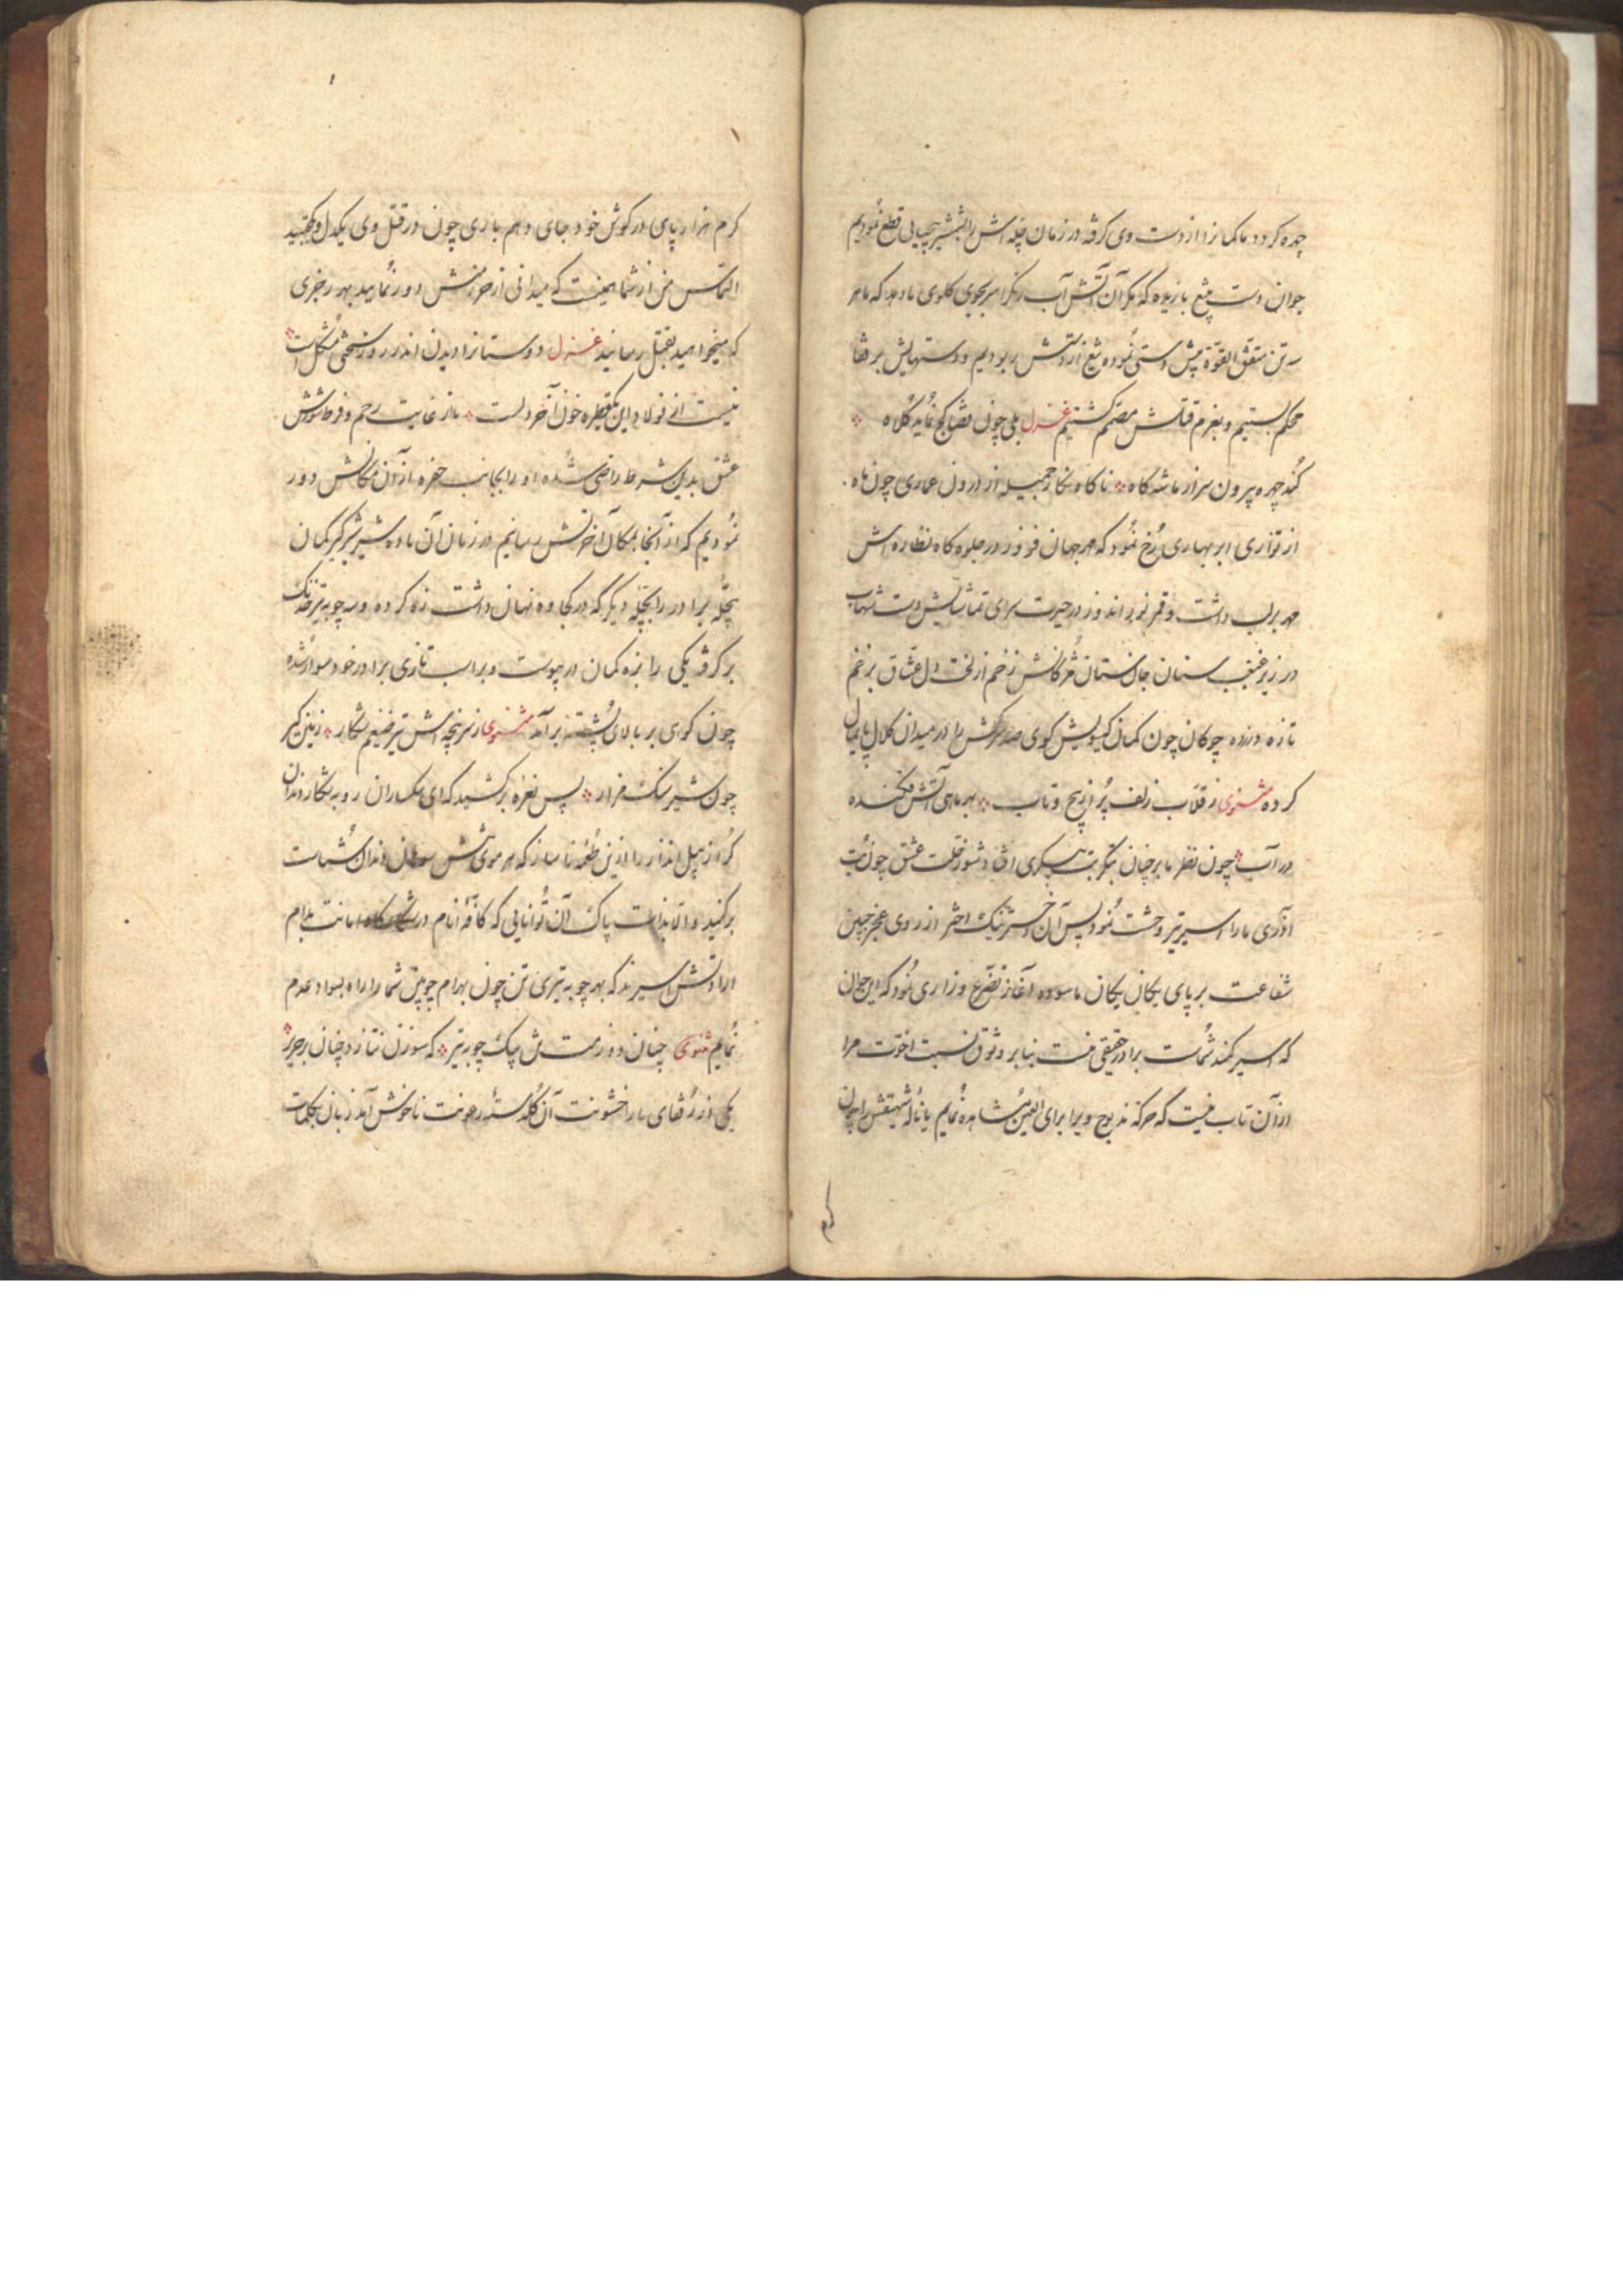 چهره کردد ما کمانرا از دست وی کرفته در زمان چله اش را بشمشیر قطع نمودیم
جوان دست بتیغ یازیده که مکر آن آتش آب رنکرا بجوی کلوی ما دهد که ما هر
سه تن متفق القوّة پیش دستی نموده تیغ از دستش ربودیم و دستهایش بر قفا
محکم بستیم و بعزم قتلش مصمّم کشتیم غزل بلی چون قضا کج نماید کلاه
کند چهره بیرون سر از ماشه کاه ناکاه نکار جمیله از درون عماری چون ماه
از تواری ابر بهاری رخ نمود که مهر جهان فروز در جلوه کاه نظاره اش
مهر بر لب داشت و قمر نور اندوز در حیرت سرای تماشایش دست شهاب
در زیر غبغب سنان جان ستان مژکانش زخم از لخت دل عشّاق بر زخم
تازه دوزده چوکان چون کمان کیسویش کوی صد سرکش را در میدان کلال پایمال
کرده مثنوی ز قلّاب زلف پُر از پیچ و تاب بهر ماهی آتش فکنده
در آب چون نظر ما بر چنان بت پیکری افتاد شور عشق چون بت
آذری ما را اسیر تیر وحشت نمود پس آن دختر نیک اختر از روی عجز جبین
شفاعت بر پای یکان یکان ما سوده آغاز تضرّع و زاری نمود که این جوان
که اسیر کمند شماست برادر حقیقی منست بنابر وثوق نسبت اخوّت مرا
از آن تاب نیست که حرکة مذبوح ویرا برای العین مشاهده نمایم یا ناله شهیقش را چون
کرم هزار پای در کوش خود جای دهم باری چون در قتل وی یکدل و یکجهتید
التماس من از شما همینست که میدانی از حر منش دور نمایید بهر زجری
که میخواهید بقتل رسانید غزل دوستانرا دیدن اندر روز سختی مشکل است
نیست آنی فولاد این یکقطره خون آخر دلست ما از غایت رحم و فرط شورش
عشق بدین شرط راضی شده او را بجانب حفره از آن مکانش دور
نمودیم که از آنجا بمکان آخرتش رسانیم در زمان آن ماده شیر شیرکیر کمان
بچلّه برادر را بچلّه دیکر که در کجاوه نهان داشت زه کرده و سه چوبه تیر خدنک
بر کرفته یکی را بزه کمان در پیوست و بر اسب تازی برادر خود سوار شده
چون کوی بر بالای پشته بر آمد مثنوی ز سرپنجه اش تیر ضیغم شکار زمین کیر
چون شیر سنک مزار پس نعره بر کشید که ای سکساران روبه شکار دندان
کراز پیل انداز را ازین طعمه ناساز که هر مویش سوهان دندان شماست
برکنید و الّا بذات پاک آن توانایی که کافّه انام در شکارکاه امانت بدام
ارادتش اسیرند که بهر چوبه تیری تن چون بهرام چوبین شما را راه بسواد عدم
نمایم مثنوی چنان دوزمت تن بیک چوبه تیر که سوزن نتازد چنان بر حریر
یکی از رفقای ما را خشونت آن کلدسته رعونت ناخوش آمد زبان بکلمات